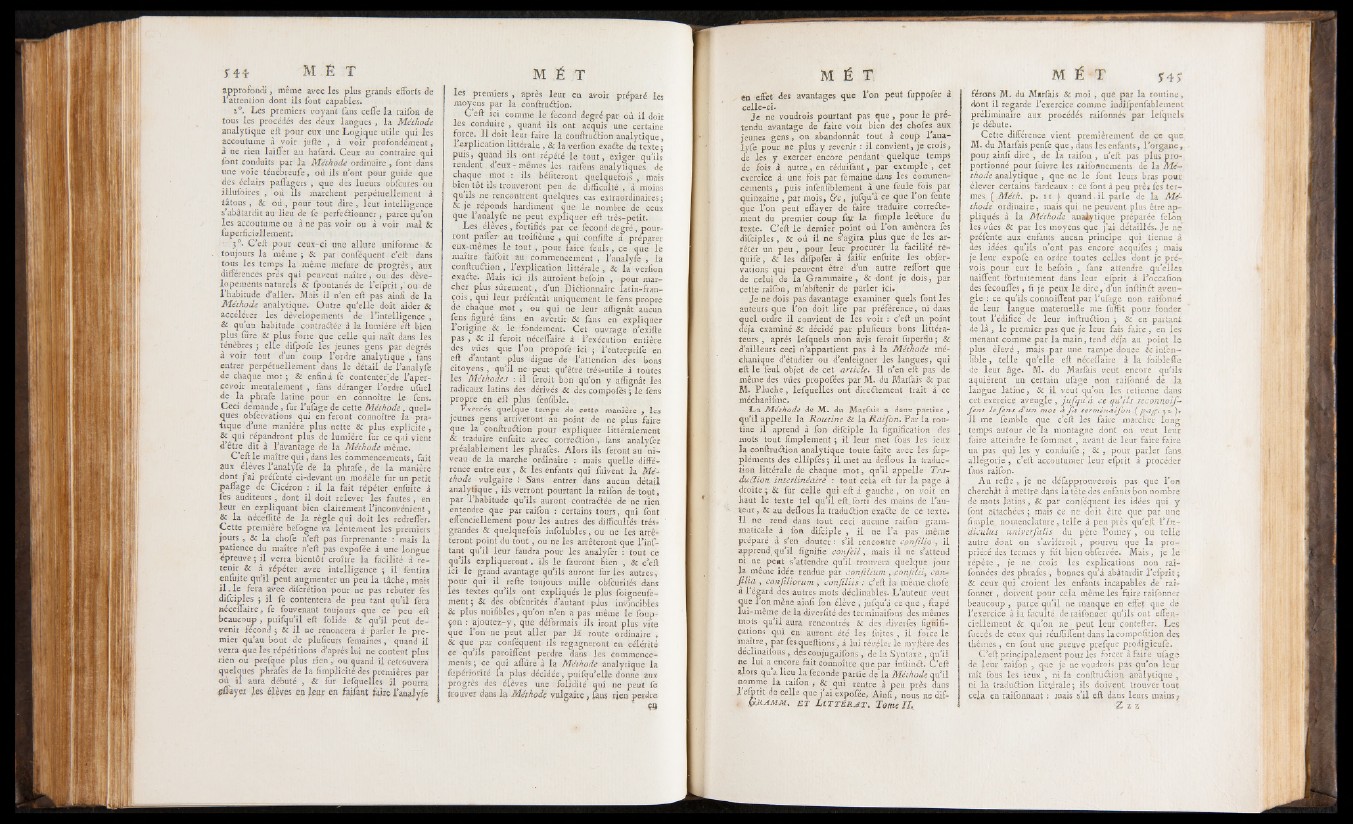 544 MÉT
approfondi, même avec les plus grands efforts de
l'attention dont ils ſont capables.
2°. Les premiers voyant ſans ceſſe la raiſon de
tous les procédés des deux langues, la Méthode
analytique eſt pour eux une Logique utile qui les
accoutume à voir juſte, à voir profondément,
à ne rien laiſſer au haſard. Ceux au contraire qui
ſont conduits par la Méthode ordinaire, ſont dans
une voie ténébreuſe, où ils n'ont pour guide que
des éclairs paſſagers, que des lueurs obſcures ou
illuſoires, où ils marchent perpétuellement à
tâtons, & où, pour tout dire, leur intelligence
s'abâtardit au lieu de ſe perfectionner, parce qu'on
les accoutume ou à ne pas voir ou à voir mal &
ſuperficiellement.
3°. C'eſt pour ceux-ci une allure uniforme &
toujours la même; & par conſéquent c'eſt dans
tous les temps la même meſure de progrès, aux
différences près qui peuvent naître, ou des déve-
lopements naturels & ſpontanés de l'eſprit, ou de
l'habitude d'aller. Mais il n'en eſt pas ainſi de la
Méthode analytique. Outre qu'elle doit aider &
accélérer les dévelopements de l'intelligence,
& qu'un habitude contractée à la lumière eſt bien
plus ſûre & plus forte que celle qui naît dans les
ténèbres; elle diſpoſe les jeunes gens par degrés
à voir tout d'un coup l'ordre analytique, ſans
entrer perpétuellement dans le détail de l'analyſe
de chaque mot; & enfin à ſe contenter de l'aper-
cevoir mentalement, ſans déranger l'ordre uſuel
de la phraſe latine pour en connoître le ſens.
Ceci demande, ſur l'uſage de cette Méthode, quel-
ques obſervations qui en feront connoître la pra-
tique d'une manière plus nette & plus explicite,
& qui répandront plus de lumière ſur ce qui vient
d'être dit à l'avantage de la Méthode même.
C'eſt le maître qui, dans les commencements, fait
aux élèves l'analyſe de la phraſe, de la manière
dont j'ai préſenté ci-devant un modèle ſur un petit
paſſage de Cicéron : il la fait répéter enſuite à
ſes auditeurs, dont il doit relever les fautes, en
leur en expliquant bien clairement l'inconvénient,
& la néceſſité de la règle qui doit les redreſſer.
Cette première beſogne va lentement les premiers
jours, & la choſe n'eſt pas ſurprenante : mais la
patience du maître n'eſt pas expoſée à une longue
épreuve; il verra bientôt croître la facilité à re-
tenir & à répéter avec intelligence; il ſentira
enſuite qu'il peut augmenter un peu la tâche, mais
il le fera avec diſcrétion pour ne pas rebuter ſes
diſciples; il ſe contentera de peu tant qu'il ſera
néceſſaire, ſe ſouvenant toujours que ce peu eſt
beaucoup, puiſqu'il eſt ſolide & qu'il peut de-
venir fécond; & il ne renoncera à parler le pre-
mier qu'au bout de pluſieurs ſemaines, quand il
verra que les répétitions d'après lui ne coûtent plus
rien ou preſque plus rien, ou quand il retrouvera
quelques phraſes de la ſimplicité des premières par
où il aura débuté, & ſur leſquelles il pourra
eſſayer les élèves en leur en faiſant faire l'analyſe
MÉT
les premiers, après leur en avoir préparé les
moyens par la conſtruction.
C'eſt ici comme le ſecond degré par où il doit
les conduire, quand ils ont acquis une certaine
force. Il doit leur faire la conſtruction analytique,
l'explication littérale, & la verſion exacte du texte;
puis, quand ils ont répété le tout, exiger qu'ils
rendent d'eux-mêmes les raiſons analytiques de
chaque mot : ils héſiteront quelquefois, mais
bien tôt ils trouveront peu de difficulté, à moins
qu'ils ne rencontrent quelques cas extraordinaires;
& je réponds hardiment que le nombre de ceux
que l'analyſe ne peut expliquer eſt très-petit.
Les élèves, fortifiés par ce ſecond degré, pour-
ront paſſer au troiſième, qui conſiſte à préparer
eux-mêmes le tout, pour faire ſeuls, ce que le
maître faiſoit au commencement, l'analyſe, la
conſtruction, l'explication littérale, & la verſion
exacte. Mais ici ils auroient beſoin, pour mar-
cher plus sûrement, d'un Dictionnaire latin-fran-
çois, qui leur préſentât uniquement le ſens propre
de chaque mot, ou qui ne leur aſſignât aucun
ſens figuré ſans en avertir & ſans en expliquer
l'origine & le fondement. Cet ouvrage n'exiſte
pas, & il ſeroit néceſſaire à l'exécution entière
des vûes que l'on propoſe ici; l'entrepriſe en
eſt d'autant plus digne de l'attention des bons
citoyens, qu'il ne peut qu'être très-utile à toutes
les Méthodes : il ſeroit bon qu'on y aſſignât les
radicaux latins des dérivés & des compoſés; le ſens
propre en eſt plus ſenſible.
Exercés quelque temps de cette manière, les
jeunes gens arriveront au point de ne plus faire
que la conſtruction pour expliquer littéralement
& traduire enſuite avec correction, ſans analyſer
préalablement les phraſes. Alors ils ſeront au ni-
veau de la marche ordinaire : mais quelle diffé-
rence entre eux, & les enfants qui ſuivent la Mé-
thode vulgaire! Sans entrer dans aucun détail
analytique, ils verront pourtant la raiſon de tout,
par l'habitude qu'ils auront contractée de ne rien
entendre que par raiſon : certains tours, qui ſont
eſſenciellement pour les autres des difficultés très-
grandes & quelquefois inſolubles, ou ne les arrê-
teront point du tout, ou ne les arrêteront que l'inſ-
tant qu'il leur faudra pour les analyſer : tout ce
qu'ils expliqueront, ils le ſauront bien, & c'eſt
ici le grand avantage qu'ils auront ſur les autres,
pour qui il reſte toujours mille obſcurités dans
les textes qu'ils ont expliqués le plus ſoigneuſe-
ment; & des obſcurités d'autant plus invincibles
& plus nuiſibles, qu'on n'en a pas même le ſoup-
çon : ajoutez-y, que déſormais ils iront plus vite
que l'on ne peut aller par la route ordinaire,
& que par conſéquent ils regagneront en célérité
ce qu'ils paroiſſent perdre dans les commence-
ments; ce qui aſſûre à la Méthode analytique la
ſupériorité la plus décidée, puiſqu'elle donne aux
progrès des élèves une ſolidité qui ne peut ſe
trouver dans la Méthode vulgaire, ſans rien perdre
en
MÉT
en effet des avantages que l'on peut ſuppoſer à
celle-ci.
Je ne voudrois pourtant pas que, pour le pré-
tendu avantage de faire voir bien des choſes aux
jeunes gens, on abandonnât tout à coup l'ana-
lyſe pour ne plus y revenir : il convient, je crois,
de les y exercer encore pendant quelque temps
de fois à autre, en réduiſant, par exemple, cet
exercice à une fois par ſemaine dans les commen-
cements, puis inſenſiblement à une ſeule fois par
quinzaine, par mois, &c, juſqu'à ce que l'on ſente
que l'on peut eſſayer de faire traduire correcte-
ment du premier coup ſur la ſimple lecture du
texte. C'eſt le dernier point où l'on amènera ſes
diſciples, & où il ne s'agira plus que de les ar-
rêter un peu, pour leur procurer la facilité re-
quiſe, & les diſpoſer à ſaiſir enſuite les obſer-
vations qui peuvent être d'un autre reſſort que
de celui de la Grammaire, & dont je dois, par
cette raiſon, m'abſtenir de parler ici.
Je ne dois pas davantage examiner quels ſont les
auteurs que l'on doit lire par préférence, ni dans
quel ordre il convient de les voir : c'eſt un point
déja examiné & décidé par pluſieurs bons littéra-
teurs, après leſquels mon avis ſeroit ſuperflu; &
d'ailleurs ceci n'appartient pas à la Méthode mé-
chanique d'étudier ou d'enſeigner les langues, qui
eſt le ſeul objet de cet article. Il n'en eſt pas de
même des vûes propoſées par M. du Marſais & par
M. Pluche, leſquelles ont directement trait à ce
méchaniſme.
La Méthode de M. du Marſais a deux parties,
qu'il appelle la Routine & la Raiſon. Par la rou-
tine il aprend à ſon diſciple la ſignification des
mots tout ſimplement; il leur met ſous les ieux
la conſtruction analytique toute faite avec les ſup-
pléments des ellipſes; il met au deſſous la traduc-
tion littérale de chaque mot, qu'il appelle Tra-
duction interlinéaire : tout cela eſt ſur la page à
droite; & ſur celle qui eſt à gauche, on voit en
haut le texte tel qu'il eſt ſorti des mains de l'au-
teur, & au deſſous la traduction exacte de ce texte.
Il ne rend dans tout ceci aucune raiſon gram-
maticale à ſon diſciple, il ne l'a pas même
préparé à s'en douter : s'il rencontre conſilio, il
apprend qu'il ſignifie conſeil, mais il ne s'attend
ni ne peut s'attendre qu'il trouvera quelque jour
la même idée rendue par conſilium, conſilii, con-
ſilia, conſiliorum, conſiliis : c'eſt la même choſe
à l'égard des autres mots déclinables. L'auteur veut
que l'on mène ainſi ſon élève, juſqu'à ce que, frapé
lui-même de la diverſité des terminaiſons des mêmes
mots qu'il aura rencontrés & des diverſes ſignifi-
cations qui en auront été les ſuites, il force le
maître, par ſes queſtions, à lui révéler le myſtère des
déclinaiſons, des conjugaiſons, de la Syntaxe, qu'il
ne lui a encore fait connoître que par inſtinct. C'eſt
alors qu'a lieu la ſeconde partie de la Méthode qu'il
nomme la raiſon, & qui rentre à peu près dans
l'eſprit de celle que j'ai expoſée. Ainſi, nous ne dif-
GRAMM. ET LITTÉRAT. Tome II.
MÉT 545
férons M. du Marſais & moi, que par la routine,
dont il regarde l'exercice comme indiſpenſablement
préliminaire aux procédés raiſonnés par leſquels
je débute.
Cette différence vient premièrement de ce que
M. du Marſais penſe que, dans les enfants, l'organe,
pour ainſi dire, de la raiſon, n'eſt pas plus pro-
portionné pour ſuivre les raiſonnements de la Mé-
thode analytique, que ne le ſont leurs bras pour
élever certains fardeaux : ce ſont à peu près ſes ter-
mes (Méth. p. 11) quand il parle de la Mé-
thode ordinaire, mais qui ne peuvent plus être ap-
pliqués à la Méthode analytique préparée ſelon
les vûes & par les moyens que j'ai détaillés. Je ne
préſente aux enfants aucun principe qui tienne à
des idées qu'ils n'ont pas encore acquiſes; mais
je leur expoſe en ordre toutes celles dont je pré-
vois pour eux le beſoin, ſans attendre qu'elles
naiſſent fortuitement dans leur eſprit à l'occaſion
des ſecouſſes, ſi je peux le dire, d'un inſtinct aveu-
gle : ce qu'ils connoiſſent par l'uſage non raiſonné
de leur langue maternelle me ſuffit pour fonder
tout l'édifice de leur inſtruction; & en partant
de là, le premier pas que je leur fais faire, en les
menant comme par la main, tend déja au point le
plus élevé, mais par une rampe douce & inſen-
ſible, telle qu'elle eſt néceſſaire à la foibleſſe
de leur âge. M. du Marſais veut encore qu'ils
aquièrent un certain uſage non raiſonné de la
langue latine, & il veut qu'on les retienne dans
cet exercice aveugle, juſqu'à ce qu'ils reconnoiſ-
ſent le ſens d'un mot à ſa terminaiſon (pag. 32).
Il me ſemble que c'eſt les faire marcher long
temps autour de la montagne dont on veut leur
faire atteindre le ſommet, avant de leur faire faire
un pas qui les y conduiſe; &, pour parler ſans
allégorie, c'eſt accoutumer leur eſprit à procéder
ſans raiſon.
Au reſte, je ne déſapprouverois pas que l'on
cherchât à mettre dans la tête des enfants bon nombre
de mots latins, & par conſéquent les idées qui y
ſont attachées; mais ce ne doit être que par une
ſimple nomenclature, telle à peu près qu'eſt l'In-
diculus univerſalis du père Pomey, ou telle
autre dont on s'aviſeroit, pourvu que la pro-
priété des termes y fût bien obſervée. Mais, je le
répète, je ne crois les explications non rai-
ſonnées des phraſes, bonnes qu'à abâtardir l'eſprit;
& ceux qui croient les enfants incapables de rai-
ſonner, doivent pour cela même les faire raiſonner
beaucoup, parce qu'il ne manque en effet que de
l'exercice à la faculté de raiſonner qu'ils ont eſſen-
ciellement & qu'on ne peut leur conteſter. Les
ſuccès de ceux qui réuſſiſſent dans la compoſition des
thèmes, en ſont une preuve preſque prodigieuſe.
C'eſt principalement pour les forcer à faire uſage
de leur raiſon, que je ne voudrois pas qu'on leur
mît ſous les ieux, ni la conſtruction analytique,
ni la traduction littérale; ils doivent trouver tout
cela en raiſonnant : mais s'il eſt dans leurs mains,
Zzz